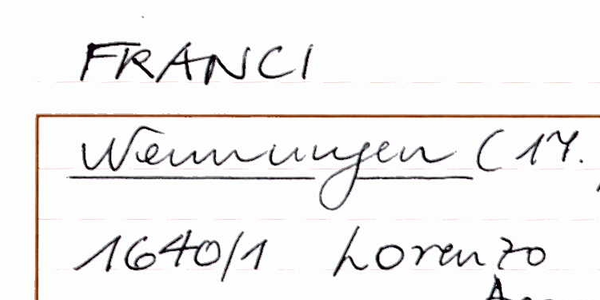 FRANCI
Wennungen (17.
1640/1 Lorenzo